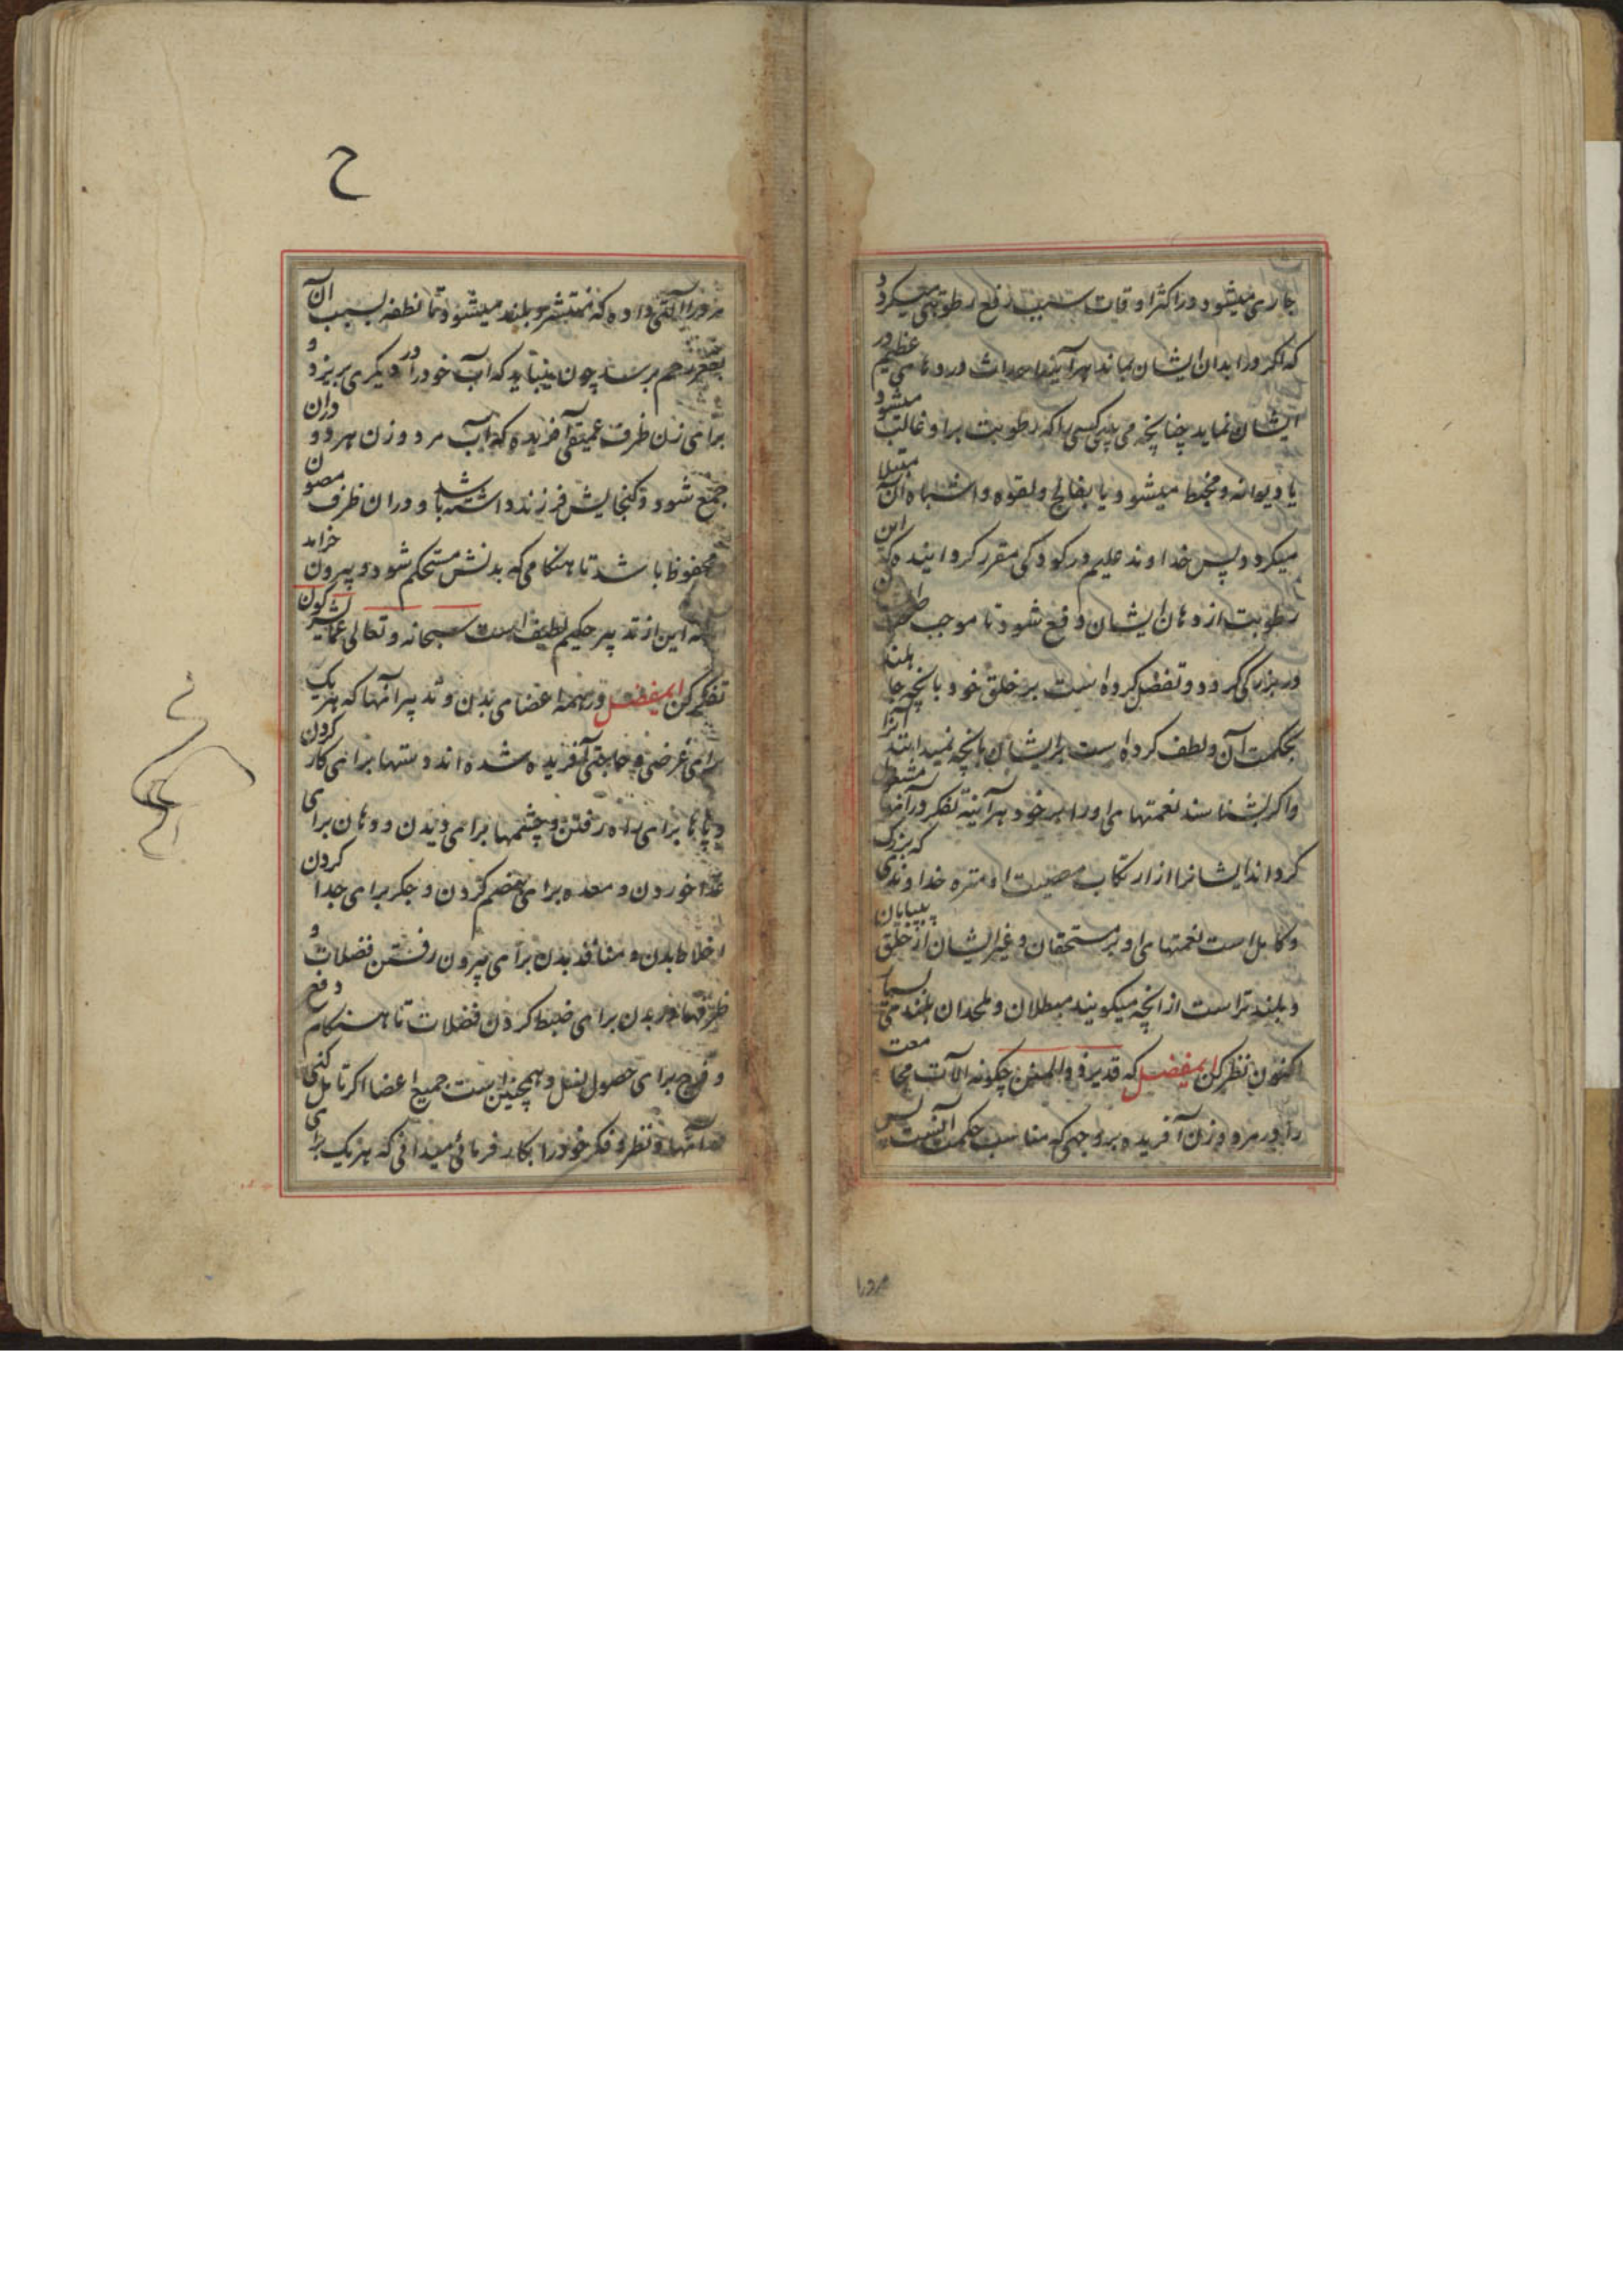 جاری میشود در اکثر اوقات سبب رفع رطوبتی میگردد
که اگر در ابدان ایشان بماند هر آینه احداث دردهای عظیم در
ایشان نماید چنانچه می بینی کسی را که رطوبت بر او غالب میشود
یا دیوانه و مخبط میشود یا بفالج و لقوه و اشباه آن مبتلا
میگردد پس خداوند علیم در کودکی مقرر گردانیده که این
رطوبت از دهان ایشان دفع شود تا موجب صحت
در بزرگی گردد و تفضل کرده است بر خلق خود بانچه جاهلند
بحکمت آن و لطف کرده است بر ایشان بانچه نمیدانند آنرا
و اگر بشناسند نعمتهای او را بر خود هر آینه تفکر در آنها مشغول
گرداند ایشانرا از ارتکاب معصیت او منزه خداوندی که بزرگ
و کامل است نعمتهای او بر مستحقان و غیر ایشان از خلق
و بلند تر است از انچه میگویند مبطلان و ملحدان بلندی بیپایان
اکنون نظر کن ایمفضل که قدیر ذو المنن چگونه آلات مجامعت
را در مرد و زن آفریده بر وجهی که مناسب حکمت آنست پس
مرد را آلتی داده که منتشر و بلند میشود تا نطفه بسبب آن
بقعر رحم برسد چون میباید که آب خود را در دیگری بریزد و
برای زن ظرف عمیقی آفریده که آب مرد و زن هر دو در ان
جمع شود و گنجایش فرزند داشته باشد و در ان ظرف مصون
و محفوظ باشد تا هنگامی که بدنش مستحکم شود و بیرون خرامد
همه این از تدبیر حکیم لطیف است سبحانه و تعالی عما یشرکون
تفکر کن ایمفضل در همه اعضای بدن و تدبیر آنها که هر یک
برای غرضی و حاجتی آفریده شده اند دستها برای کار کردن
و پاها برای راه رفتن و چشمها برای دیدن و دهان برای
غذا خوردن و معده برای هضم کردن و جگر برای جدا کردن
اخلاط بدن و منافذ بدن برای بیرون رفتن فضلات و
ظرفها در بدن برای ضبط کردن فضلات تا هنگام دفع
و فرج برای حصول نسل و همچنین است جمیع اعضا اگر تامل کنی
در آنها و نظر و فکر خود را بکار فرمائی میدانی که هر یک برای